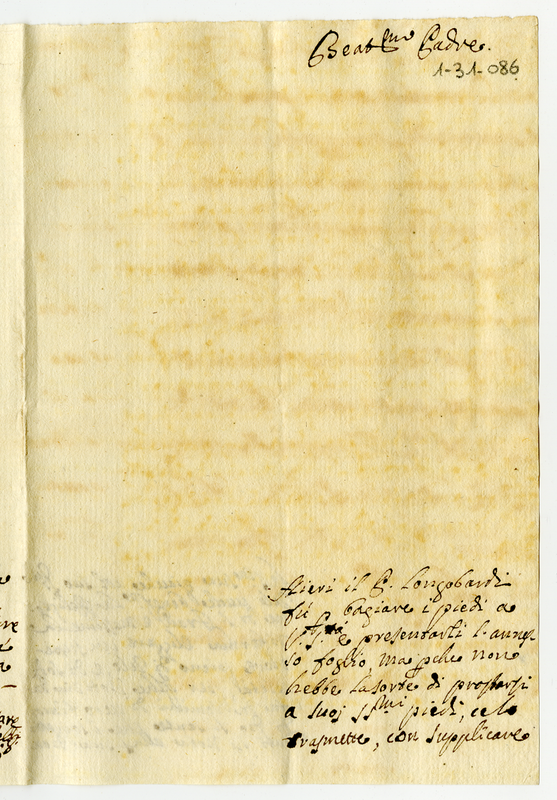 Beat.mo Padre.
1-31-086
Hieri il P. Longobardi
fù p bagiare i piedi a
V. S.tà e presentarli l'annes-
so foglio, ma pche non
hebbe la sorte di prostarsi
a suoi SS.mi piedi, ce lo
trasmette, con supplicare